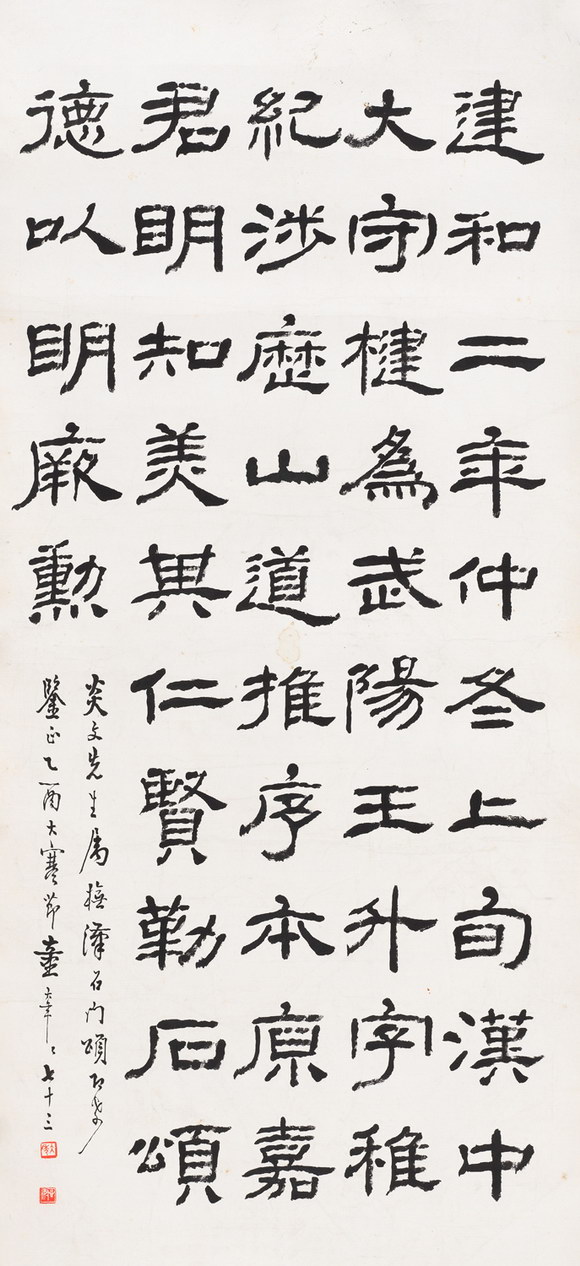 建和二年仲冬上旬漢中
大守楗為武陽王升字稚
紀涉歷山道推序本原嘉
君明知美其仁賢勒石頌
德以明厥勳
炎文先生屬撫漢石門頌即希
鑒正乙酉大寒節童大年〻七十三